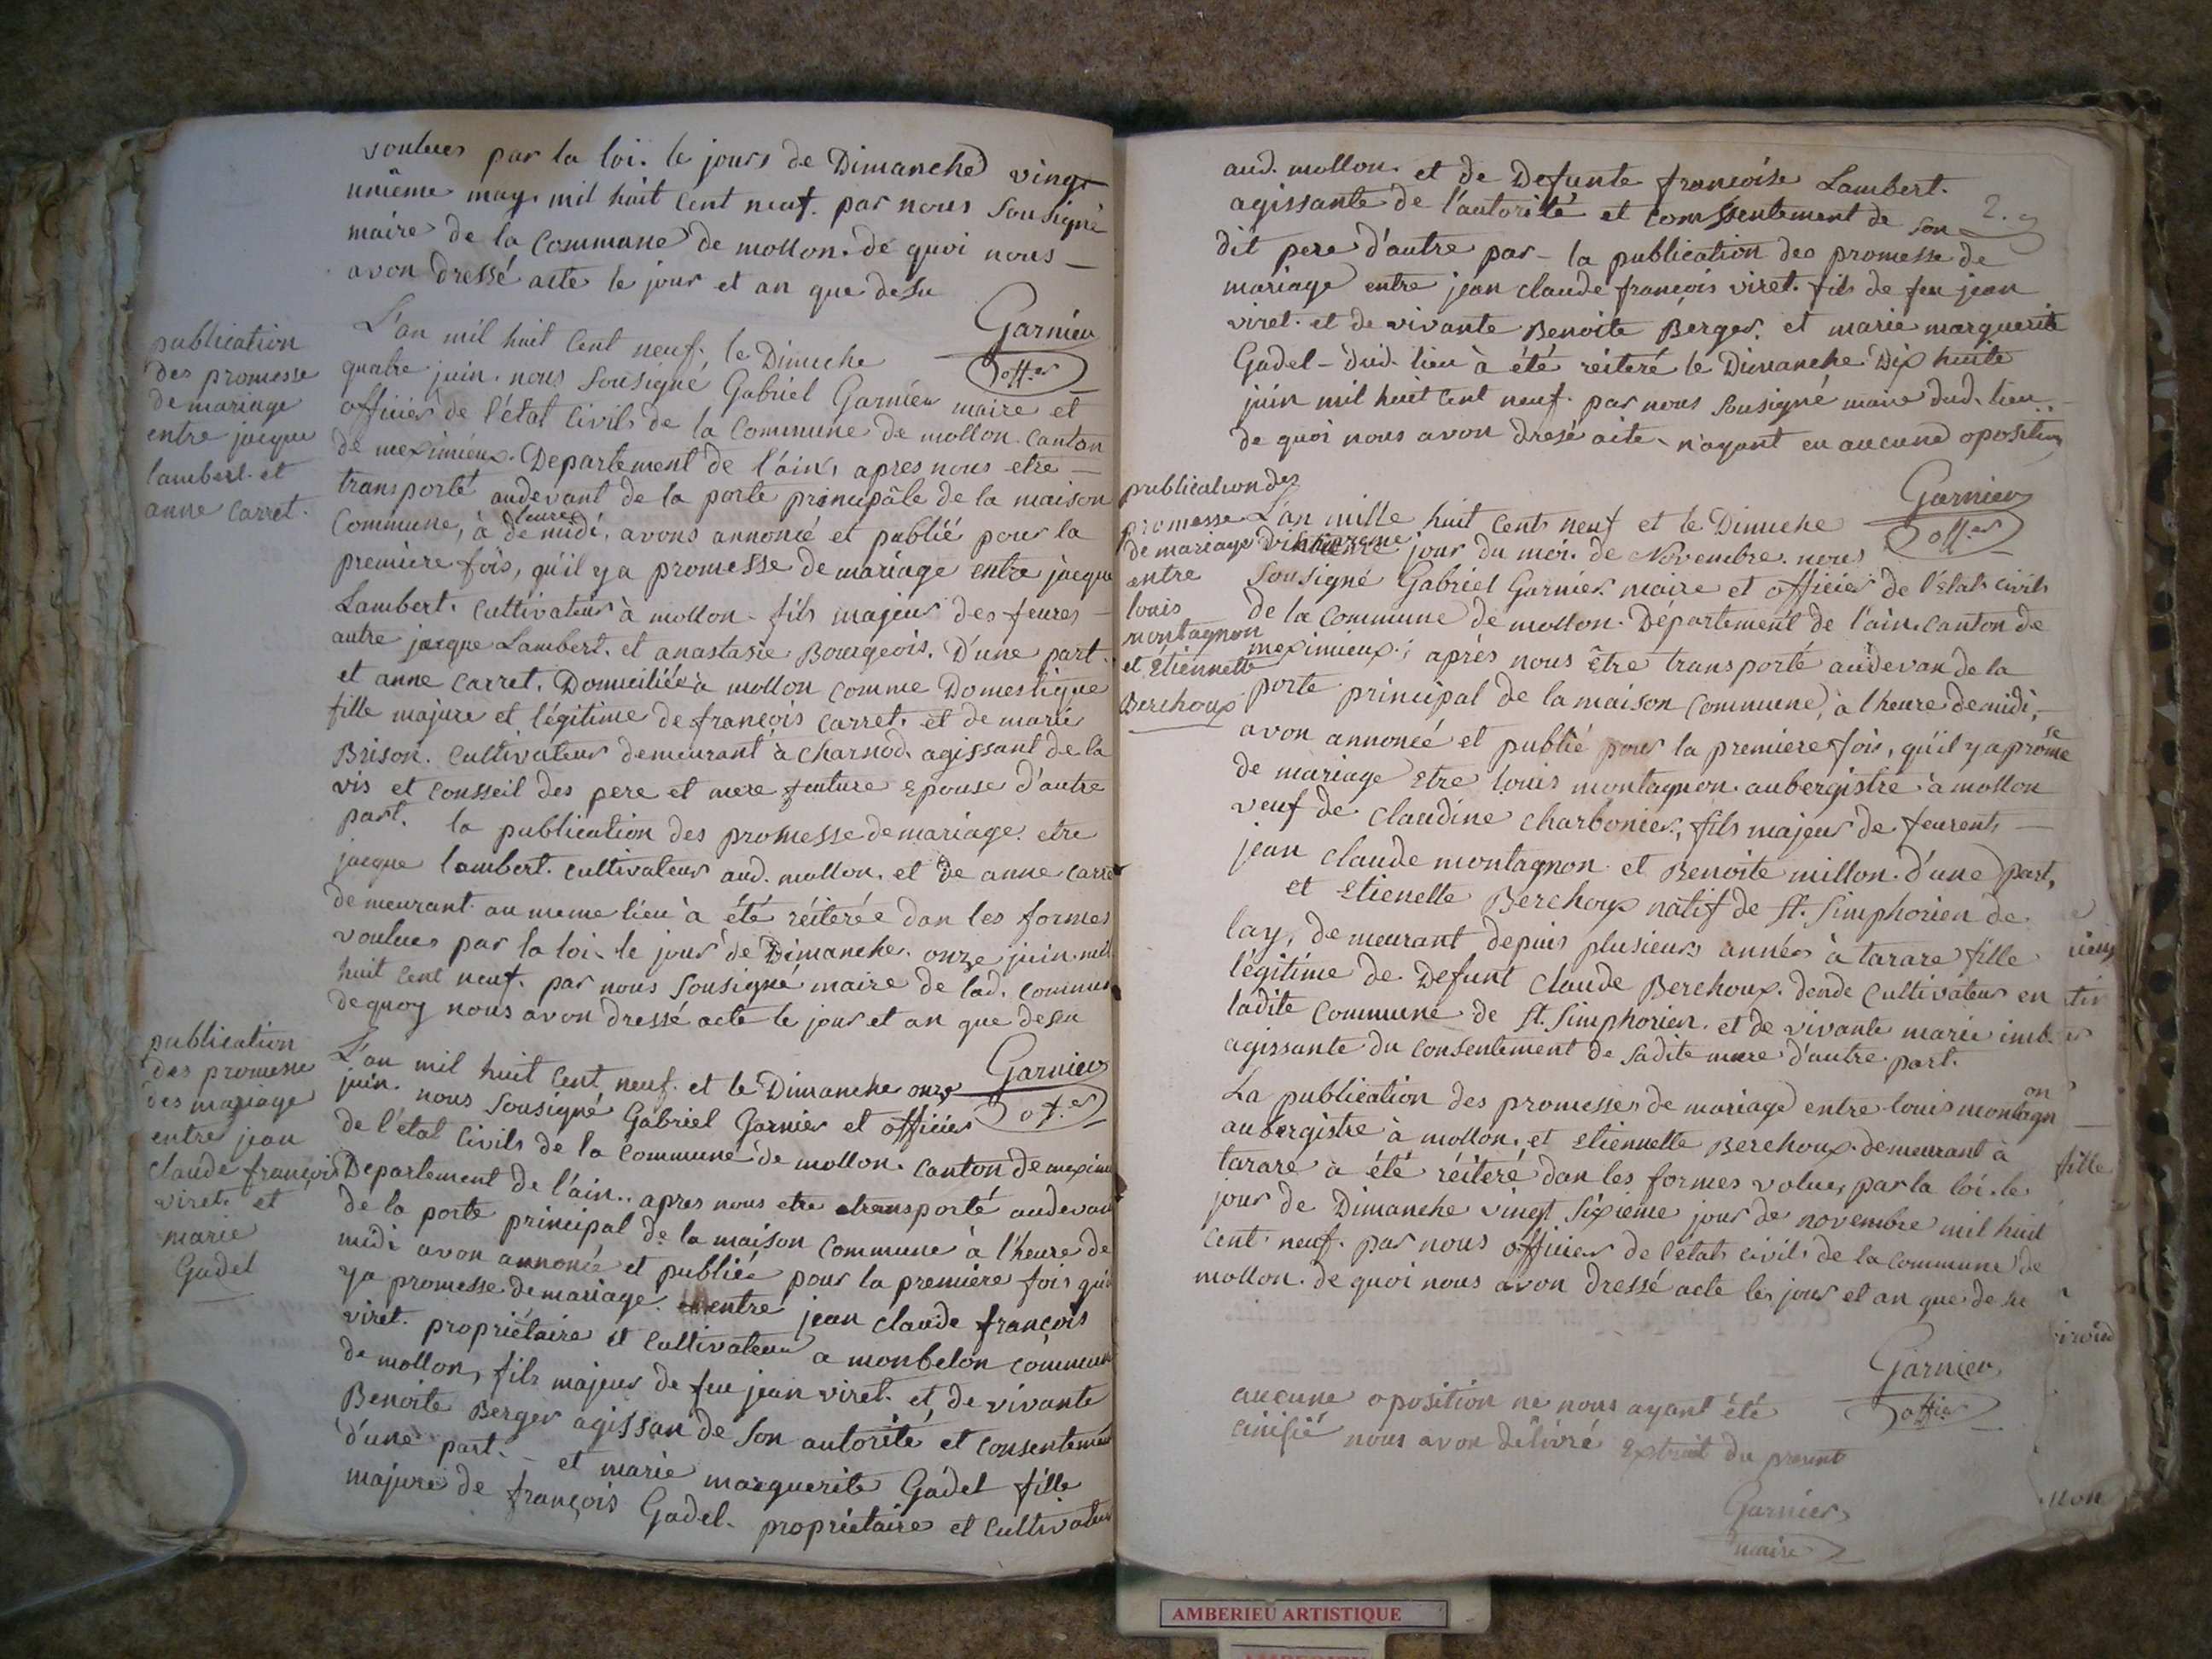 voulues par la loi. le jours de Dimanche vingt
unième may mil huit Cent neuf. par nous Sousigné
maire de la Commune de mollon. de quoi nous —
avon dressé acte le jour et an que desu
Garnier
off.er
publication
des promesse
de mariage
entre jacque
lambert. et
anne Carret.
L'an mil huit Cent neuf. le Dimuche
quatre juin. nous Sousigné Gabriel Garnier maire et
officier de l'état Civils de la Commune de mollon canton
de meximieux. Departement de l'ain, apres nous etre —
transporté audevant de la porte principâle de la maison
Commune, à l'eure de midi, avons annoncé et publié pour la
premiere fois, qu'il y a promesse de mariage entre jacque
Lambert. Cultivateur à mollon. fils majeur des feures —
autre jacque Lambert. et anastasie Bourgeois. D'une part.
et anne Carret. Domiciliée à mollon comme Domestique
fille majure et légitime de françois Carret. et de marie
Brison. Cultivateur demeurant à Charnod. agissant de la
vis et Conseil des pere et mere feuture Epouse d'autre
part. la publication des promesse de mariage. etre
jacque lambert. cultivateur aud. mollon. et de anne Carre
demeurant au meme lieu à été réiterée dan les formes
voulues par la loi. le jour de Dimanche. onze juin. mil
huit Cent neuf. par nous Sousigné maire de lad. Commun
de quoy nous avon dressé acte le jour et an que desu
Garnier
of.er
publication
des promesse
des mariage
entre jean
Claude françois
viret. et
marie
Gadel
L'an mil huit Cent neuf. et le Dimanche onze
juin. nous Sousigné Gabriel Garnier et officier
de l'état Civils de la Commune de mollon. Canton de meximi
Departement de l'ain.. apres nous etre transporté audevan
de la porte principal de la maison Commune à l'heure de
midi avon annoncé et publiée pour la premiere fois qu'il
ya promesse de mariage. entre jean Claude françois
viret. propriétaire et Cultivateur a monbelon Commun
de mollon, fils majeur de feu jean viret. et de vivante
Benoite Berger agissan de Son autorité et Consentemen
d'une part. — et marie marguerite Gadel fille
majure de françois Gadel. propriétaire et Cultivateur
2.
aud. mollon. et de Defunte françoise Lambert.
agissante de l'autorité et Consentement de Son
dit pere d'autre par — la publication des promesse de
mariage entre jean claude françois viret. fils de feu jean
viret. et de vivante Benoite Berger. et marie marguerite
Gadel — dud. lieu à été reiteré le Dimanche Dix huite
juin mil huit Cent neuf. par nous Sousigné maire dud. lieu
de quoi nous avon dresé aite. n'ayant eu aucune oposition
Garnier
off.er
publication des
promesse
de mariage
entre
louis
montagnon
et Etiennette
Berchoux
L'an mille huit Cents neuf et le Dimuche
jour du moi. de Novembre. nous
Sousigné Gabriel Garnier. maire et officier de l'état civils
de la Commune de mollon. Département de l'ain. Canton de
meximieux; après nous être transporté audevan de la
porte principal de la maison Commune, à l'heure de midi, —
avon annoncé et publié pour la premiere fois, qu'il y a promesse
de mariage Etre louis montagnon. aubergistre à mollon
veuf de Claudine Charbonier, fils majeur de feurent, —
jean Claude montagnon et Benoite millon. d'une part,
et Etienette Berchoux natif de St. Simphorien de
lay, demeurant depuis plusieurs années à tarare fille
légitime de Defunt Claude Berchoux. Cultivateur en
ladite Commune de St. Simphorien. et de vivante marie imb.
agissante du Consentement de Sadite mere d'autre part.
La publication des promesses de mariage entre louis montagnon
aubergistre à mollon. et Etiennette Berchoux. demeurant à
tarare à été réiteré dan les formes volues par la loi. le
jour de Dimanche vingt Sixieme jour de novembre mil huit
Cent neuf. par nous officier de l'état civils de la Commune de
mollon. de quoi nous avon dressé acte les jour et an que de su
Garnier
offier
aucune oposition ne nous ayant été
nous avon délivré Extrait du present
Garnier
maire
fille
AMBERIEU ARTISTIQUE